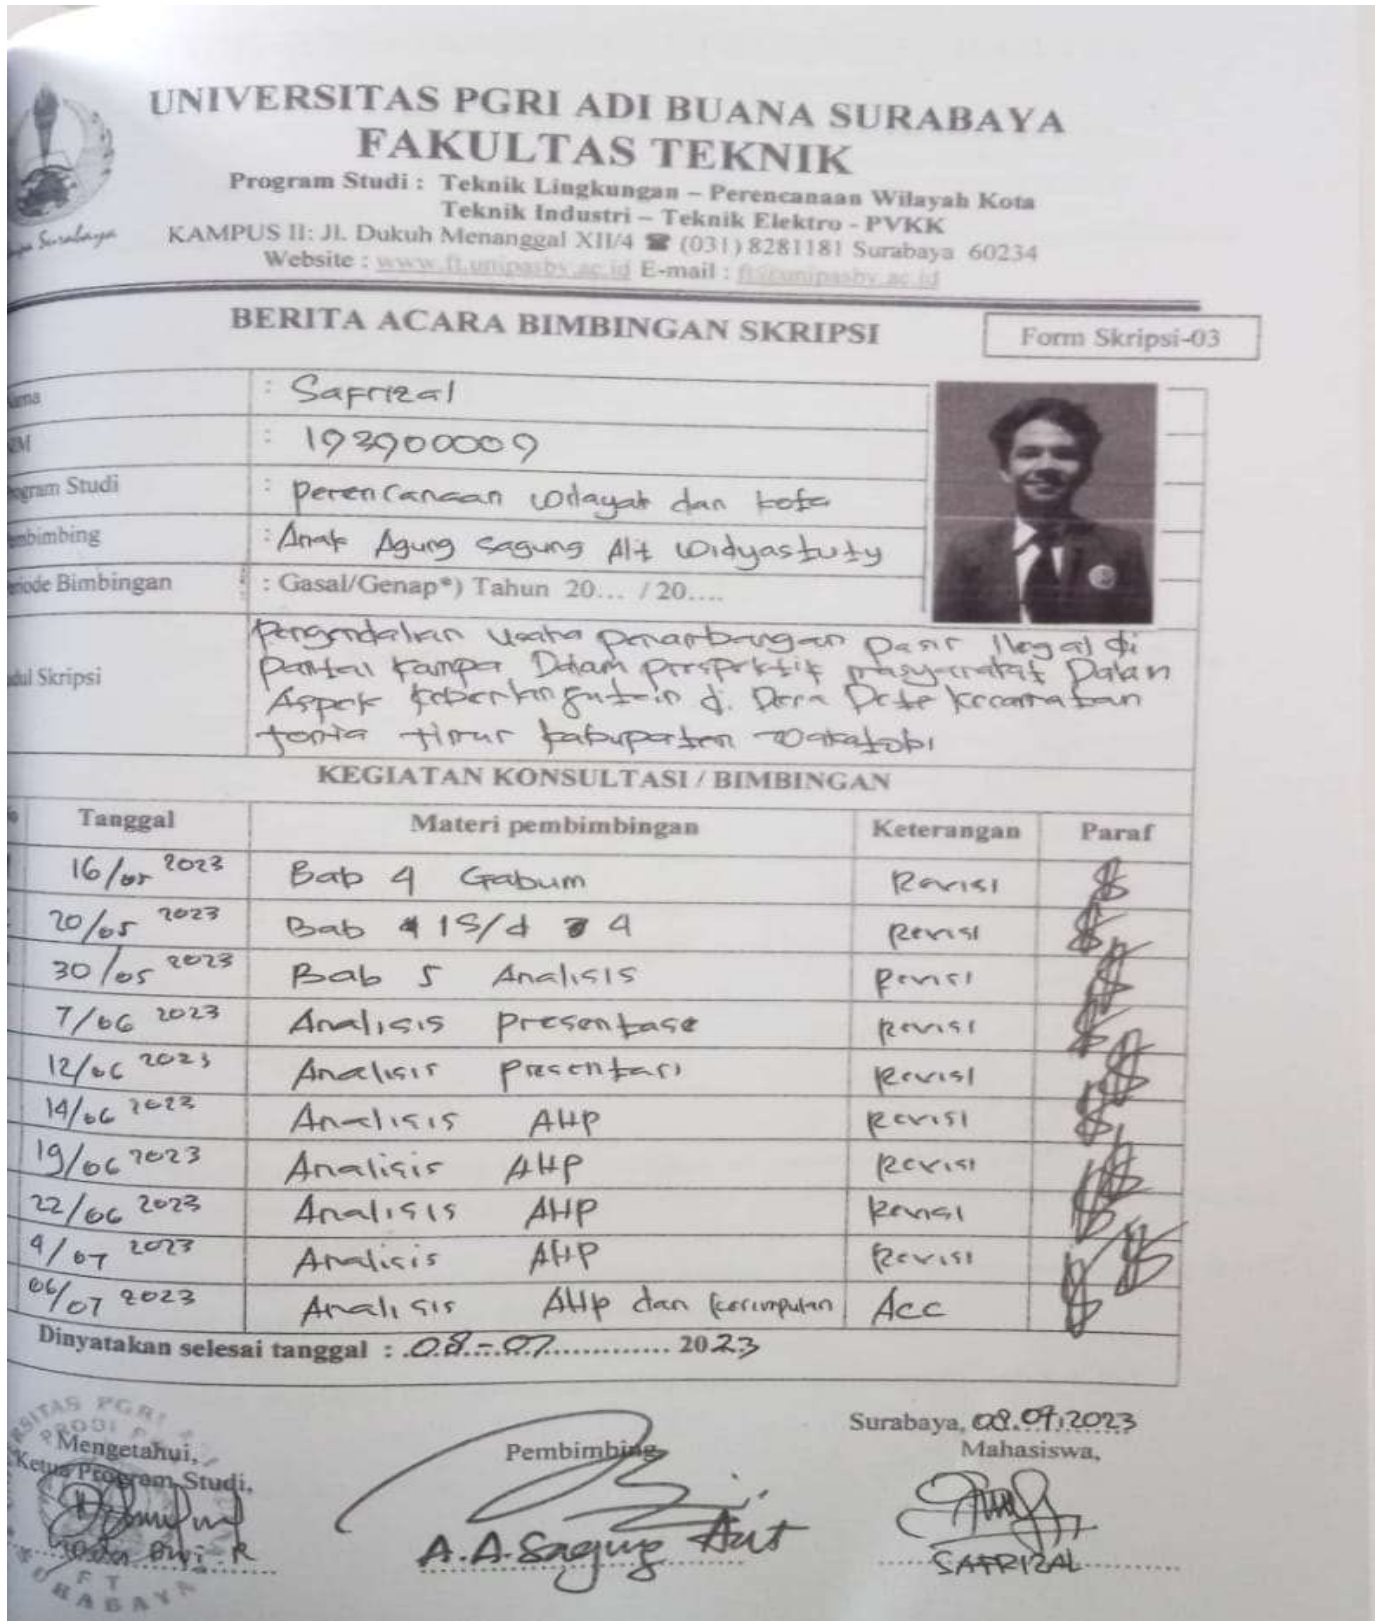 UNIVERSITAS PGRI ADI BUANA SURABAYA
FAKULTAS TEKNIK
Program Studi : Teknik Lingkungan – Perencanaan Wilayah Kota
Teknik Industri – Teknik Elektro - PVKK
KAMPUS II: Jl. Dukuh Menanggal XII/4 ☎ (031) 8281181 Surabaya 60234
Website : www.ft.unipasby.ac.id E-mail : ft@unipasby.ac.id
Surabaya
BERITA ACARA BIMBINGAN SKRIPSI
Form Skripsi-03
: Safrizal
: 193900009
Program Studi : perencanaan wilayah dan kota
: Anak Agung Sagung Alit Widyastuty
Bimbingan : Gasal/Genap*) Tahun 20... / 20....
Skripsi
Pengendalian usaha penambangan pasir Ilegal di
pantai kampa Dalam perspektif masyarakat Dalam
Aspek keberlangutain di Desa Dete kecamatan
tomia timur kabupaten wakatobi
KEGIATAN KONSULTASI / BIMBINGAN
Tanggal Materi pembimbingan Keterangan Paraf
16/05 2023 Bab 4 Gabum Revisi
20/05 2023 Bab 1 S/d 4 Revisi
30/05 2023 Bab 5 Analisis Revisi
7/06 2023 Analisis presentase Revisi
12/06 2023 Analisis presentasi Revisi
14/06 2023 Analisis AHP Revisi
19/06 2023 Analisis AHP Revisi
22/06 2023 Analisis AHP Revisi
4/07 2023 Analisis AHP Revisi
06/07 2023 Analisis AHP dan kesimpulan Acc
Dinyatakan selesai tanggal : 08-07 2023
Surabaya, 08.07.2023
Mengetahui,
Ketua Program Studi,
Pembimbing
Mahasiswa,
Dwi . R
A.A.Sagung
SAFRIZAL